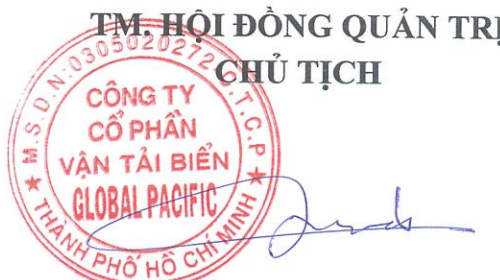 TM. HỘI ĐỒNG QUẢN TRỊ
CHỦ TỊCH
M.S.D.N:0305020272-C.T.C.P
CÔNG TY
CỔ PHẦN
VẬN TẢI BIỂN
GLOBAL PACIFIC
THÀNH PHỐ HỒ CHÍ MINH